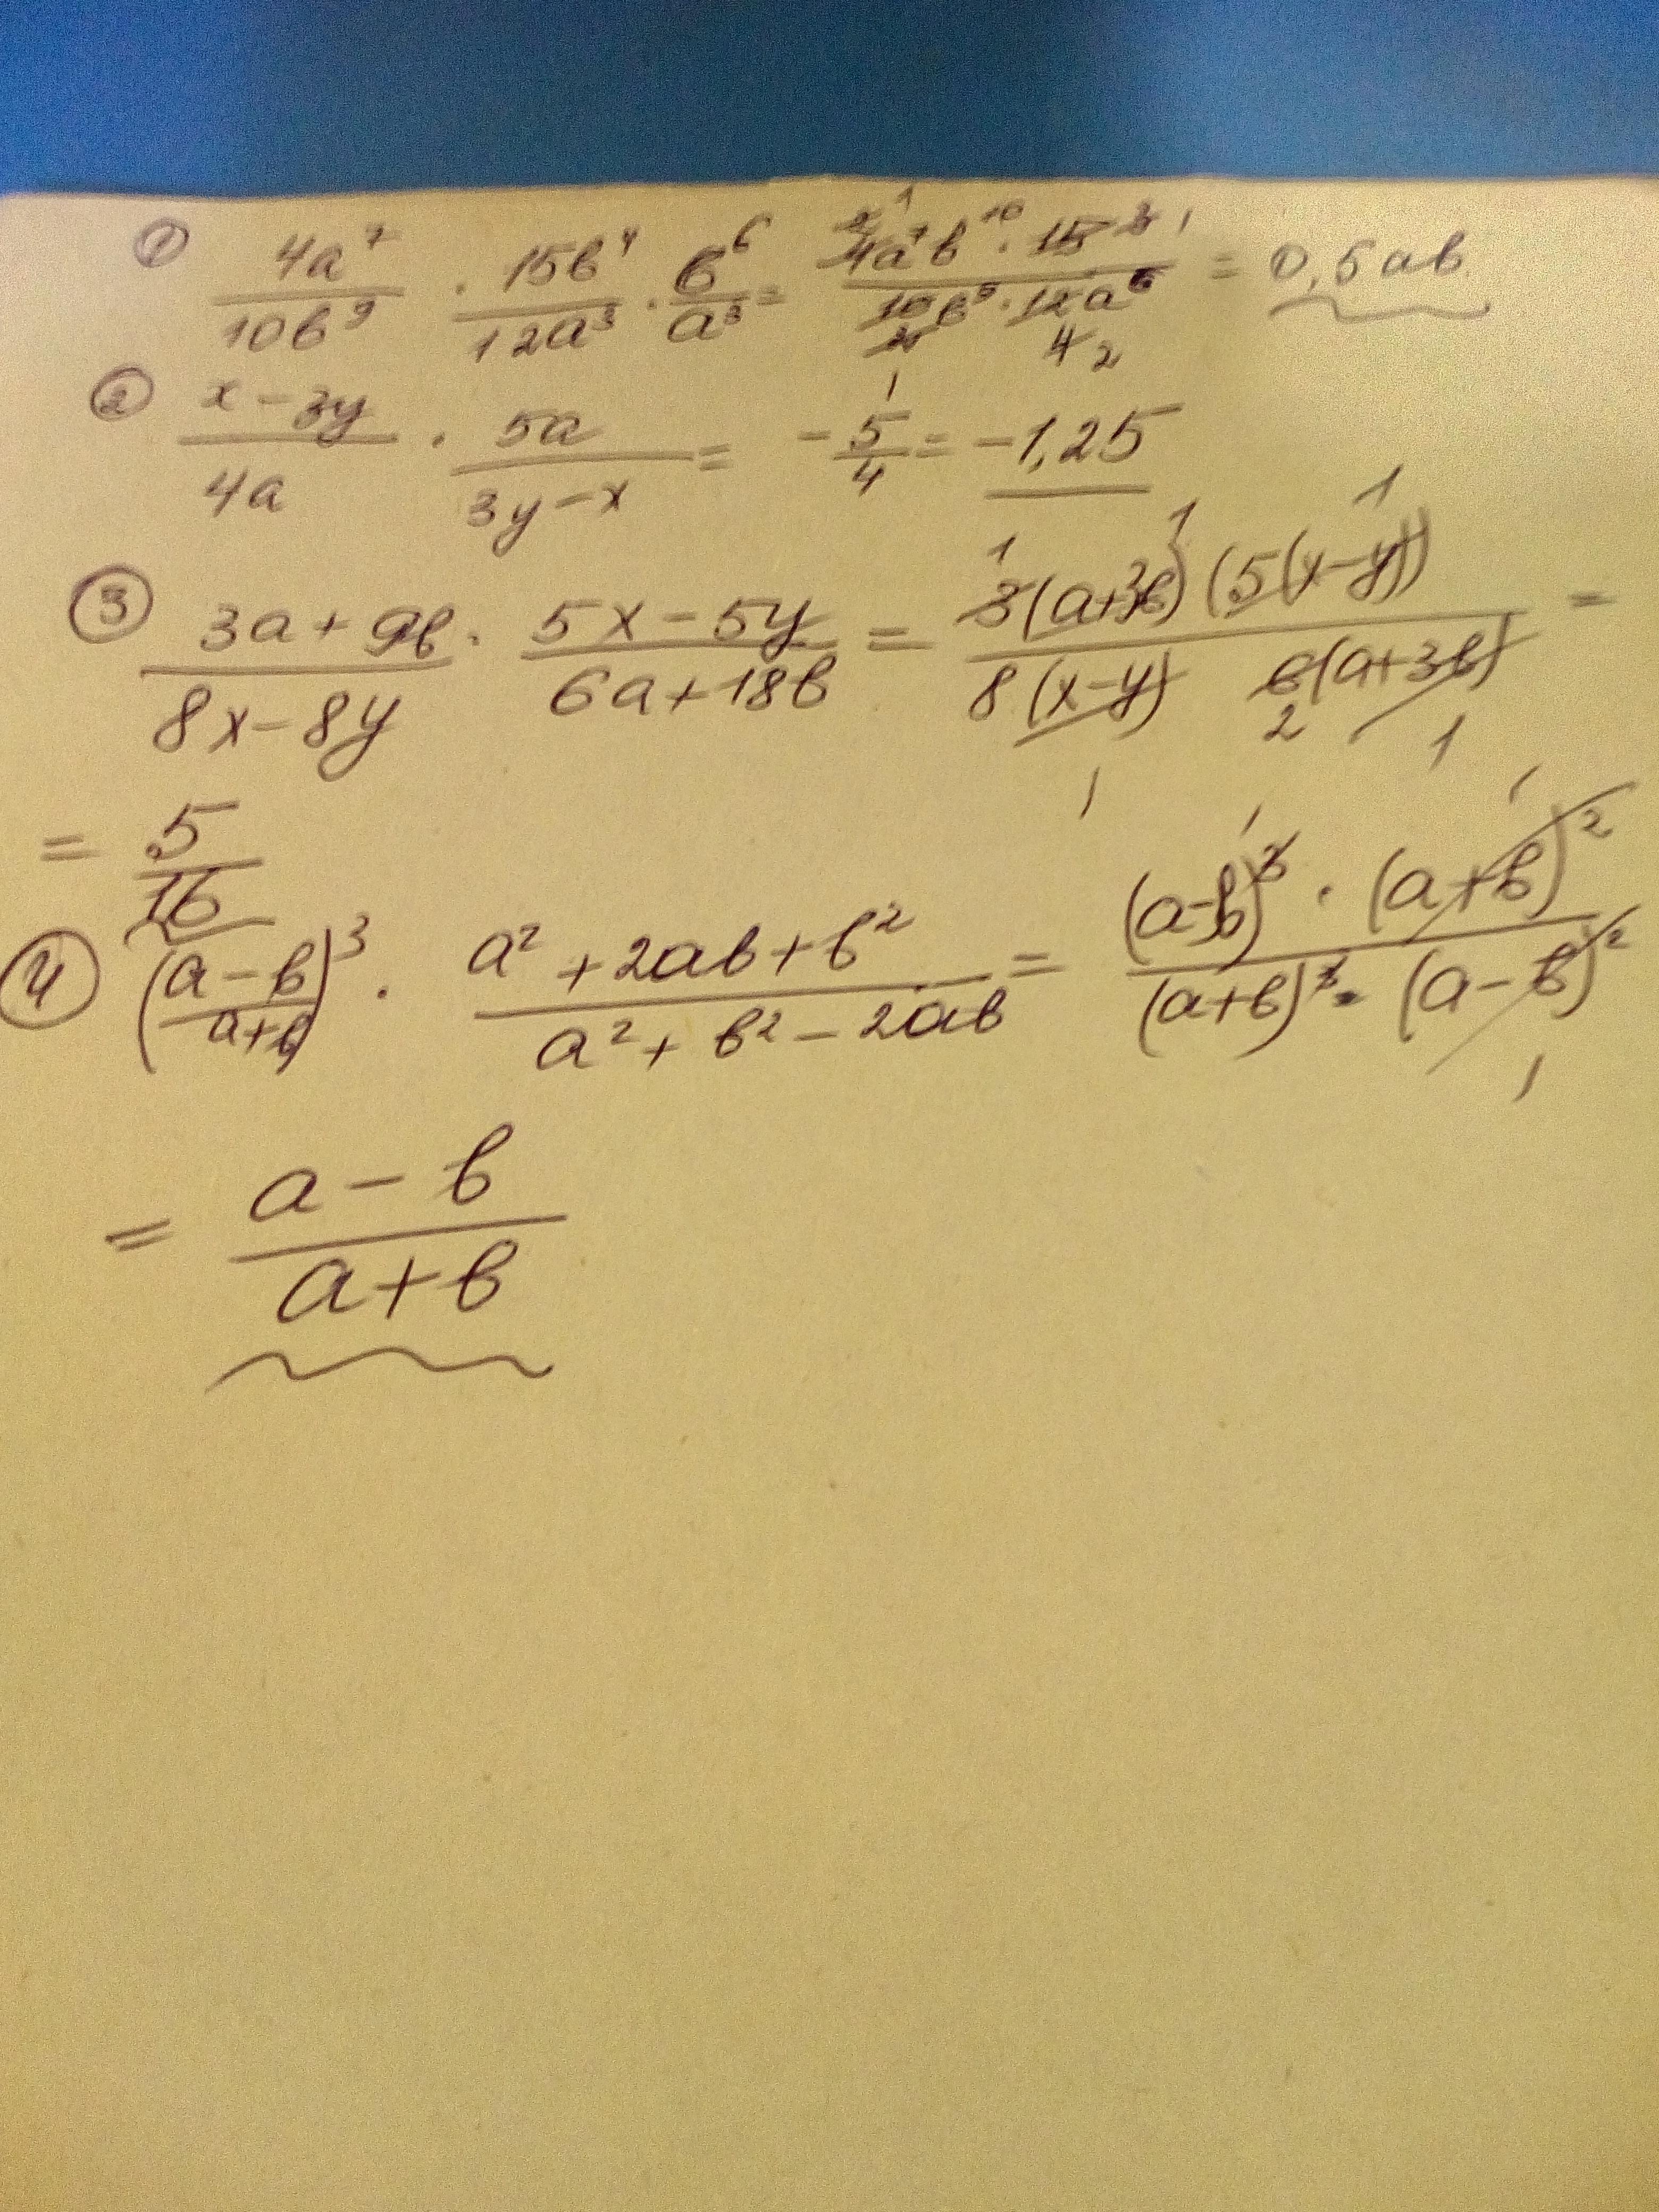 ① 4a⁷/10b⁹ · 15b⁴/12a³ · b⁶/a³ = 4a⁷b¹⁰ · 15/10b⁹ · 12a⁶ = 0,5ab
② x-3y/4a · 5a/3y-x = -5/4 = -1,25
③ 3a+9b/8x-8y · 5x-5y/6a+18b = 3(a+3b)(5(x-y))/8(x-y) 6(a+3b) =
= 5/16
④ (a-b/a+b)³ · a²+2ab+b²/a²+b²-2ab = (a-b)³ · (a+b)²/(a+b)³ · (a-b)²
= a-b/a+b